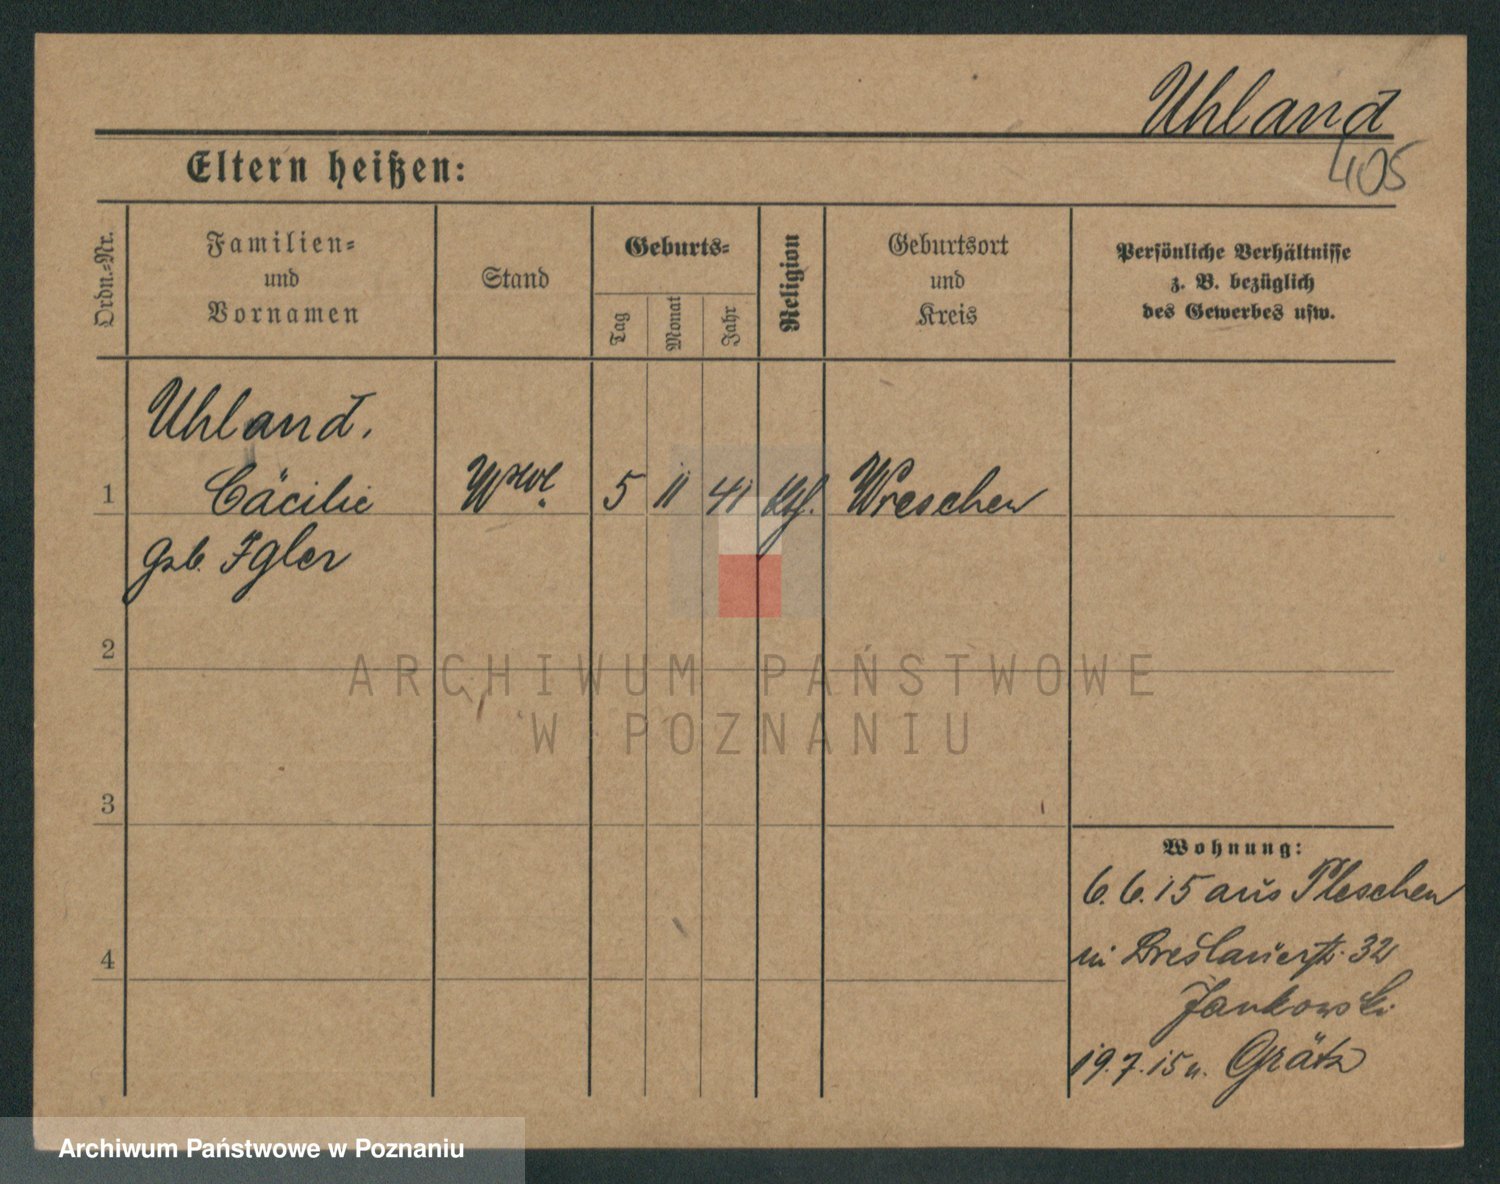 Uhland
405
Eltern heißen:
Ordn.=Nr.
Familien=
und
Vornamen
Stand
Geburts=
Tag
Monat
Jahr
Religion
Geburtsort
und
Kreis
Persönliche Verhältnisse
z. B. bezüglich
des Gewerbes usw.
Uhland,
1 Cäcilie 5 11 41 Kth. Wreschen
geb. Igler
2
3
4
Wohnung:
6.6.15 aus Pleschen
Breslauerstr. 32
Jankowski
19.7.15 n. Grätz
ARCHIWUM PAŃSTWOWE
W POZNANIU
Archiwum Państwowe w Poznaniu